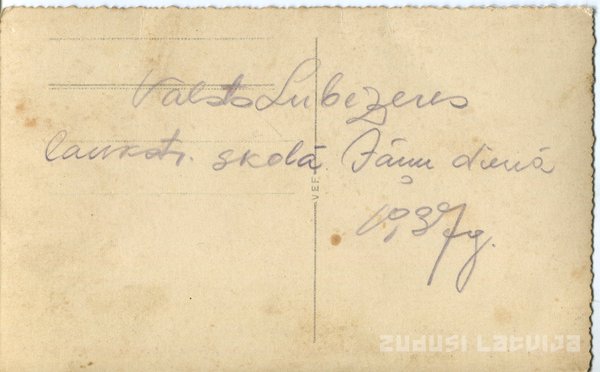 Valsts Lubezeres
laukst. skolā Jāņu dienā
1937g.
VEF
ZUDUSI LATVIJA